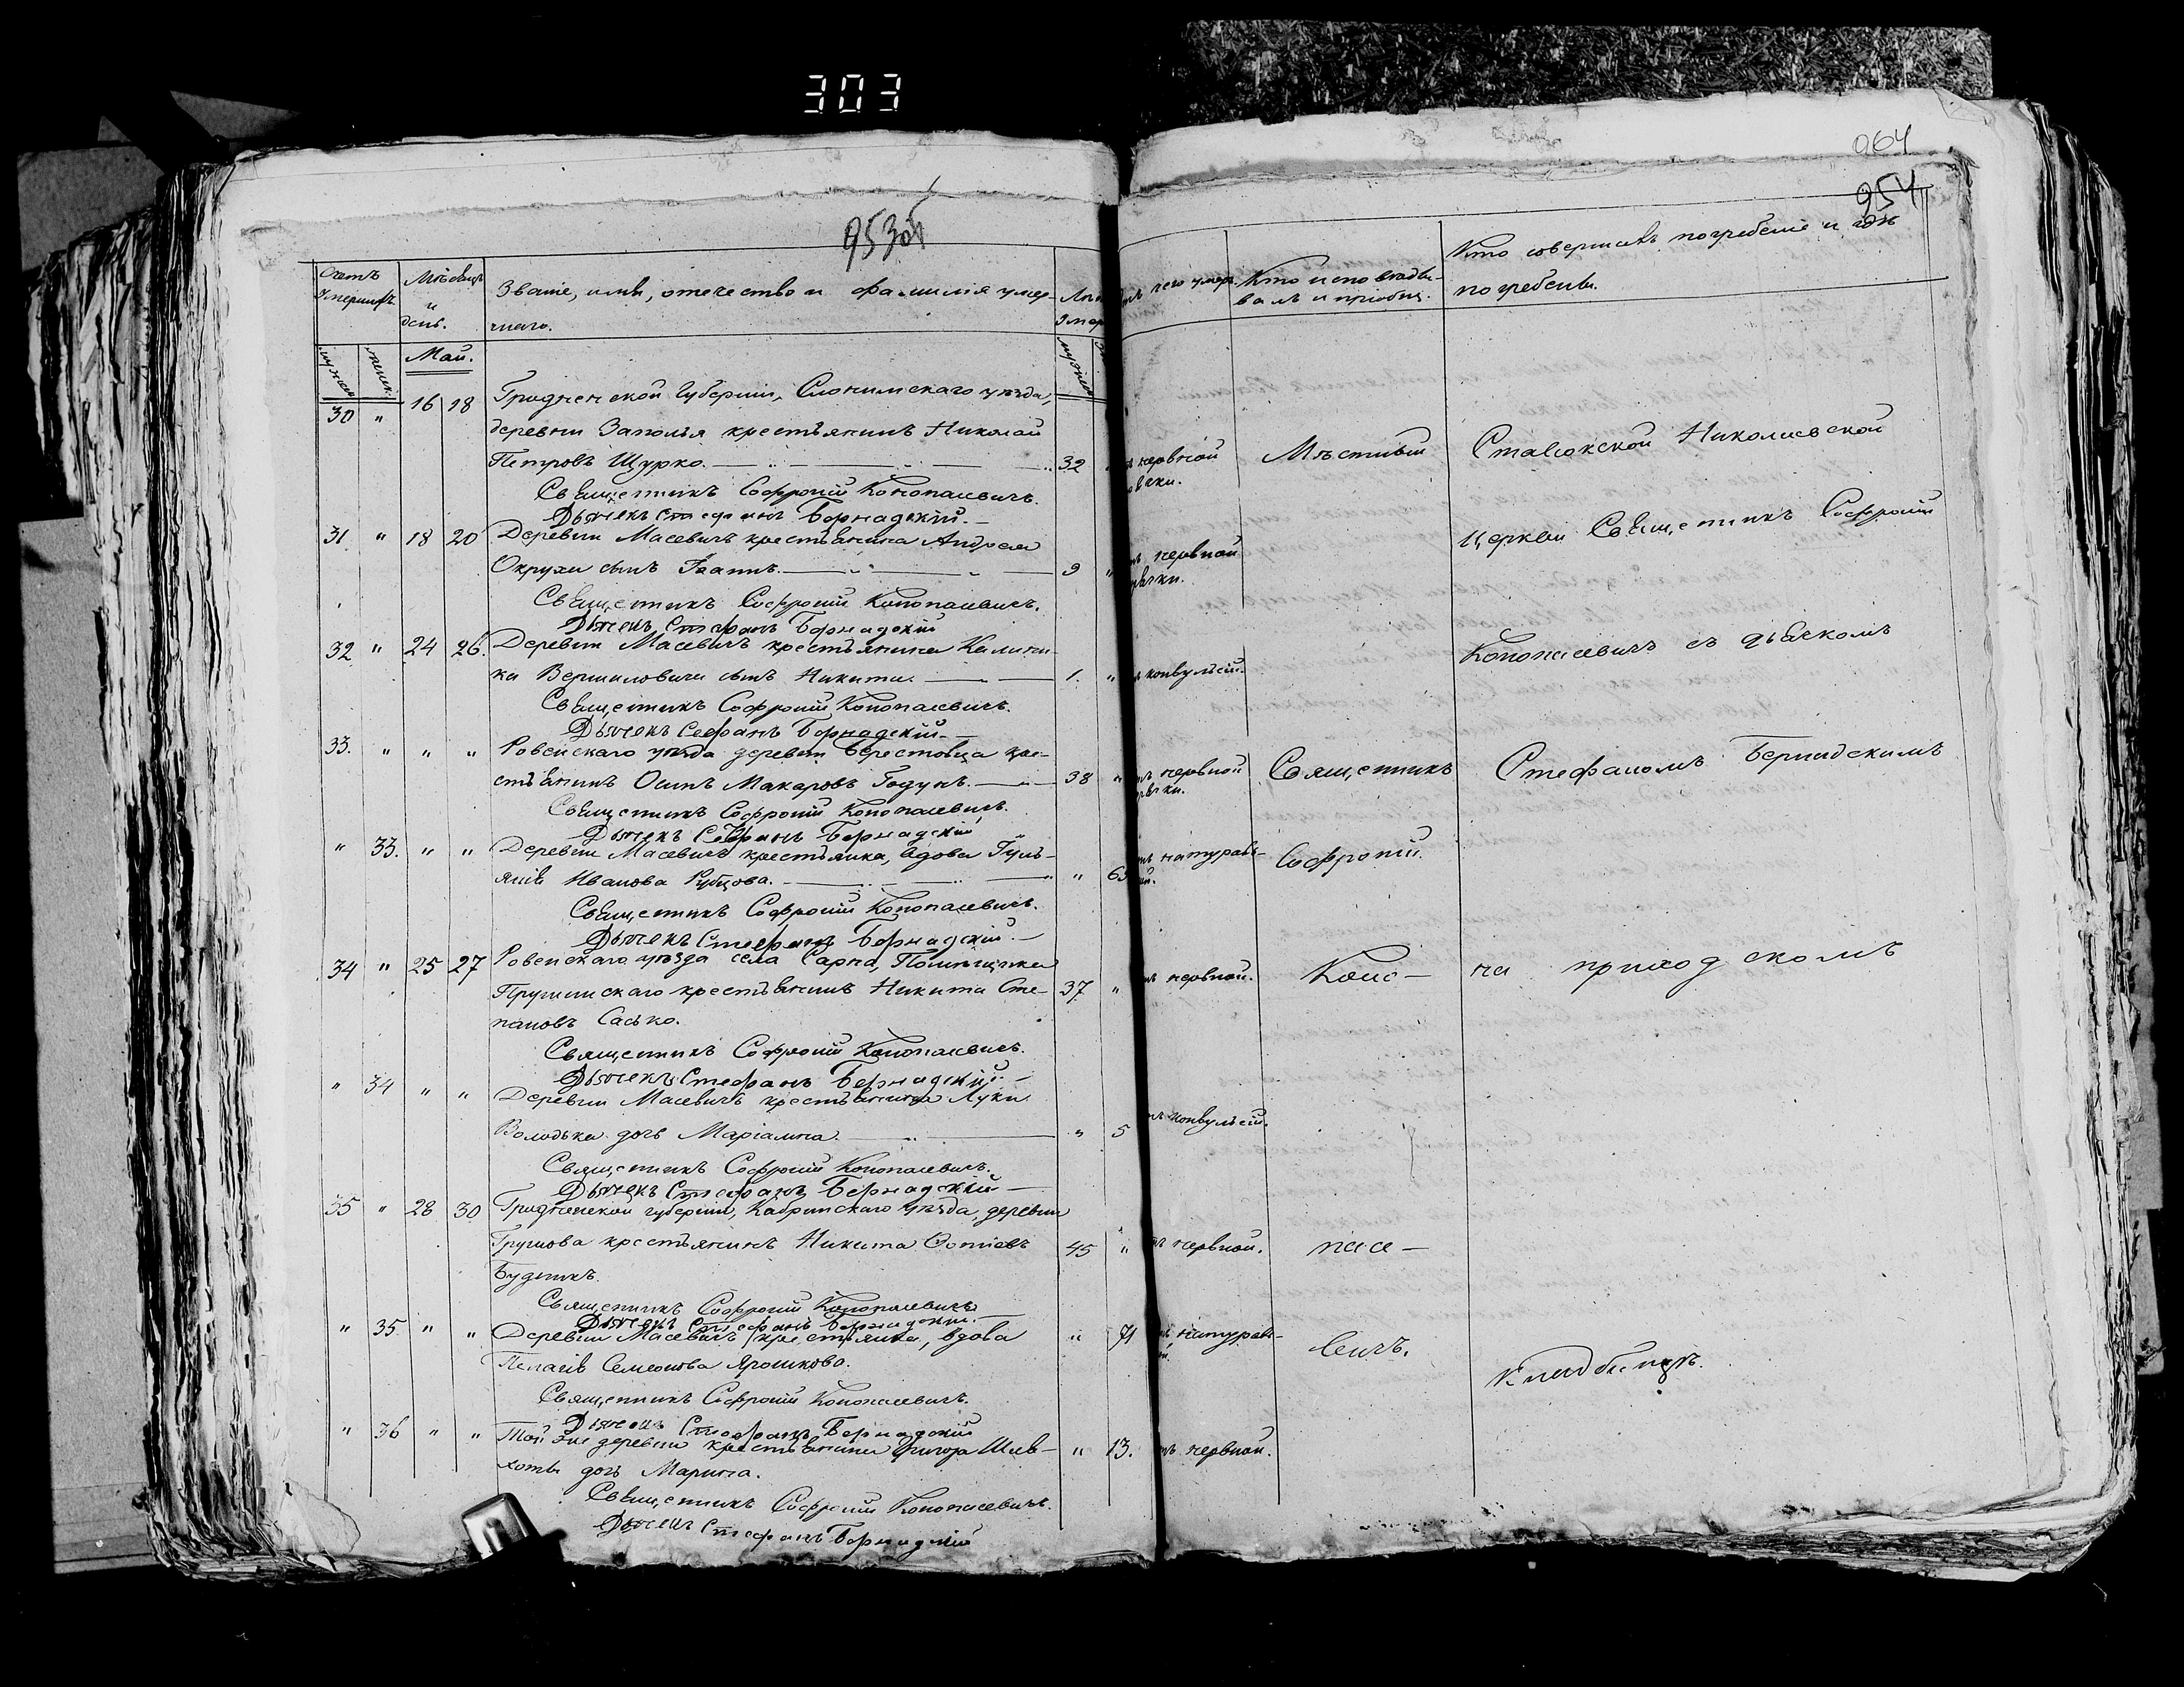 303
953об
964
954
Счетъ умершихъ
Мѣсяцъ и день.
Званіе, имя, отечество и фамилія умер-
шаго.
Лѣта
Умер
чего умеръ
Кто исповѣды-
валъ и приобщ.
Кто совершалъ погребеніе и гдѣ
погребены.
мужеск
женск.
Май.
мужеск
30 " 16 18 Гродненской Губерніи, Слонимскаго уѣзда,
деревни Заполья крестьянинъ Николай
Петровъ Щурко. 32 " нервной
горячки.
Священникъ Софроній Конопасевичъ.
Дьячекъ Стефанъ Бернадскій.
31. " 18 20 Деревни Масевичъ крестьянина Андрея
Окружи сынъ Іоаннъ. 9 " нервной
горячки.
Священникъ Софроній Конопасевичъ.
Дьячекъ Стефанъ Бернадскій
32 " 24 26. Деревни Масевичъ крестьянина Калини-
ка Вершиловича сынъ Никита. 1. " конвульсій.
Священникъ Софроній Конопасевичъ.
Дьячекъ Сефанъ Бернадскій
33. " " " Ровенскаго уѣзда деревни Берестовца кре-
стьянинъ Осипъ Макаровъ Годунъ. 38 " нервной
горячки.
Священникъ Софроній Конопасевичъ.
Дьячекъ Сефанъ Бернадскій
" 33. " " Деревни Масевичъ крестьянка, вдова Гуль-
янія Иванова Рубцова. " 65 натураль-
ной.
Священникъ Софроній Конопасевичъ.
Дьячекъ Стефанъ Бернадскій.
34 " 25 27 Ровенскаго уѣзда села Сарна, Помѣщика
Прушинскаго крестьянинъ Никита Сте- 37 " нервной.
пановъ Сасько.
Священникъ Софроній Конопасевичъ.
Дьячекъ Стефанъ Бернадскій
" 34 " " Деревни Масевичъ крестьянина Луки
Володька дочь Маріамна. " 5 конвульсій.
Священникъ Софроній Конопасевичъ.
Дьячекъ Стефанъ Бернадскій
35 " 28 30 Гродненской губерніи, Кобринскаго уѣзда, деревни
Грушова крестьянинъ Никита 45 " нервной.
Будникъ.
Священникъ Софроній Конопасевичъ
Дьячекъ Стефанъ Бернадскій.
" 35 " " Деревни Масевичъ крестьянка, вдова " 71 натураль-
Пелагія Семенова Ярошкова.
Священникъ Софроній Конопасевичъ.
Дьячекъ Стефанъ Бернадскій
" 36 " " Той же деревни крестьянина Григора Шев- " 13. нервной.
дочь Марина.
Священникъ Софроній Конопасевичъ.
Дьячекъ Стефанъ Бернадскій
Мѣстный
Священникъ
Софроній
Коно-
пасе-
вичъ.
Ставокской Николаевской
церкви Священникъ Софроній
Конопасевичъ съ дьячкомъ
Стефаномъ Бернадскимъ
на приходскомъ
кладбищѣ.